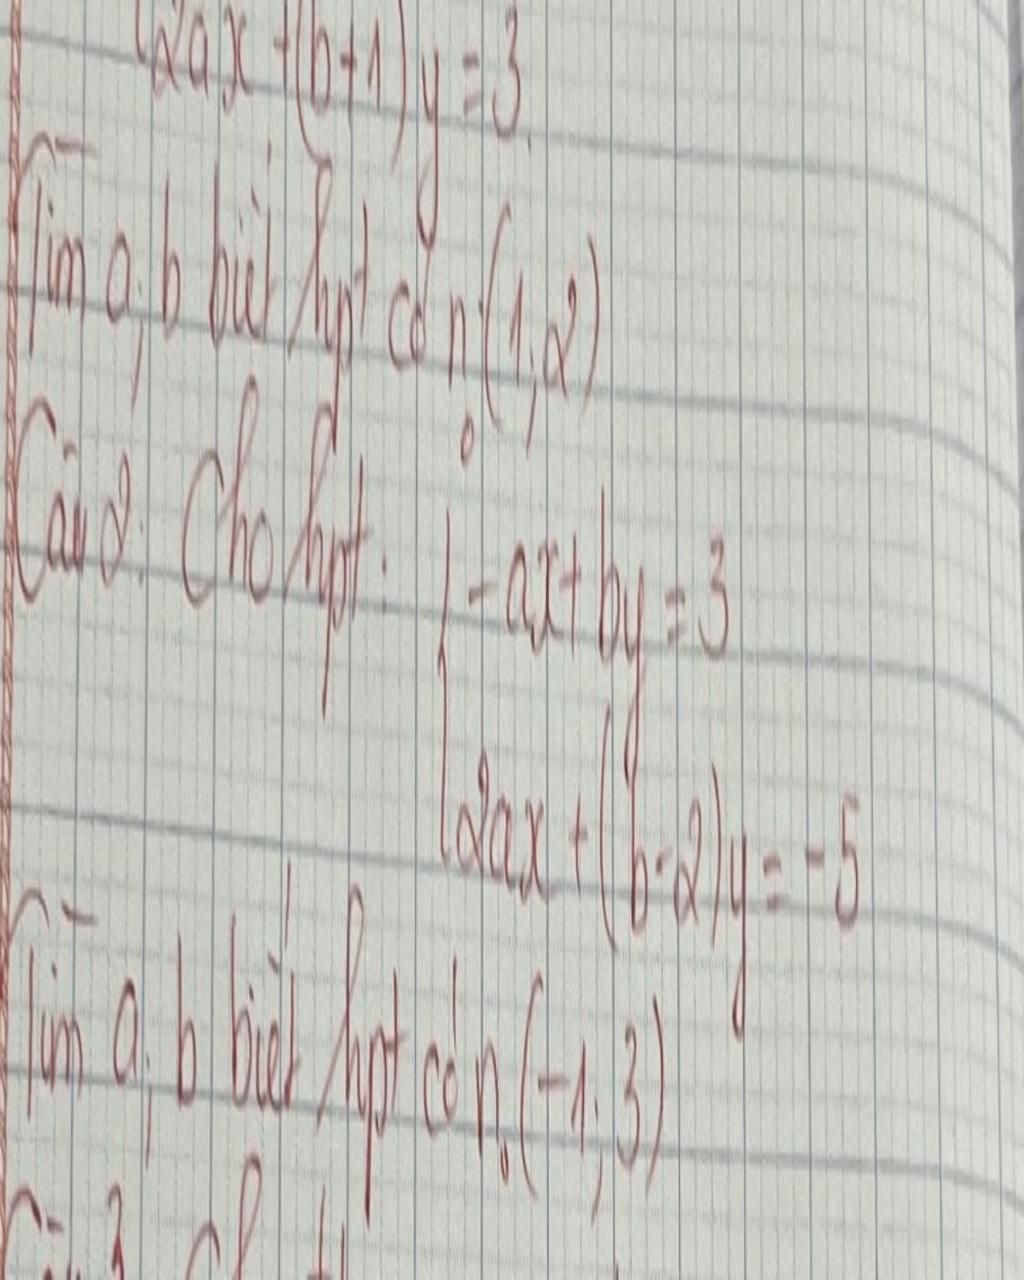 2ax + (b+1)y = 3
Tìm a, b biết hpt có n₀ (1; 2)
Câu 2: Cho hpt: { -ax + by = 3
2ax + (b-2)y = -5
Tìm a; b biết hpt có n₀ (-1; 3)